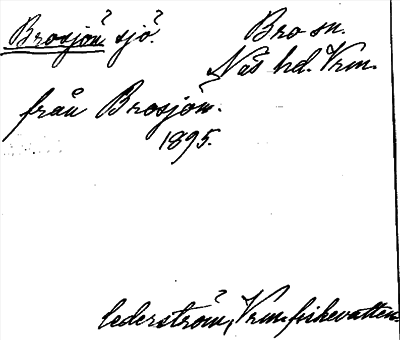 Brosjön? sjö?
Bro sn.
Näs hd. Vrm.
från Brosjön.
1895.
Cederström, Vrm. fiskevatten.